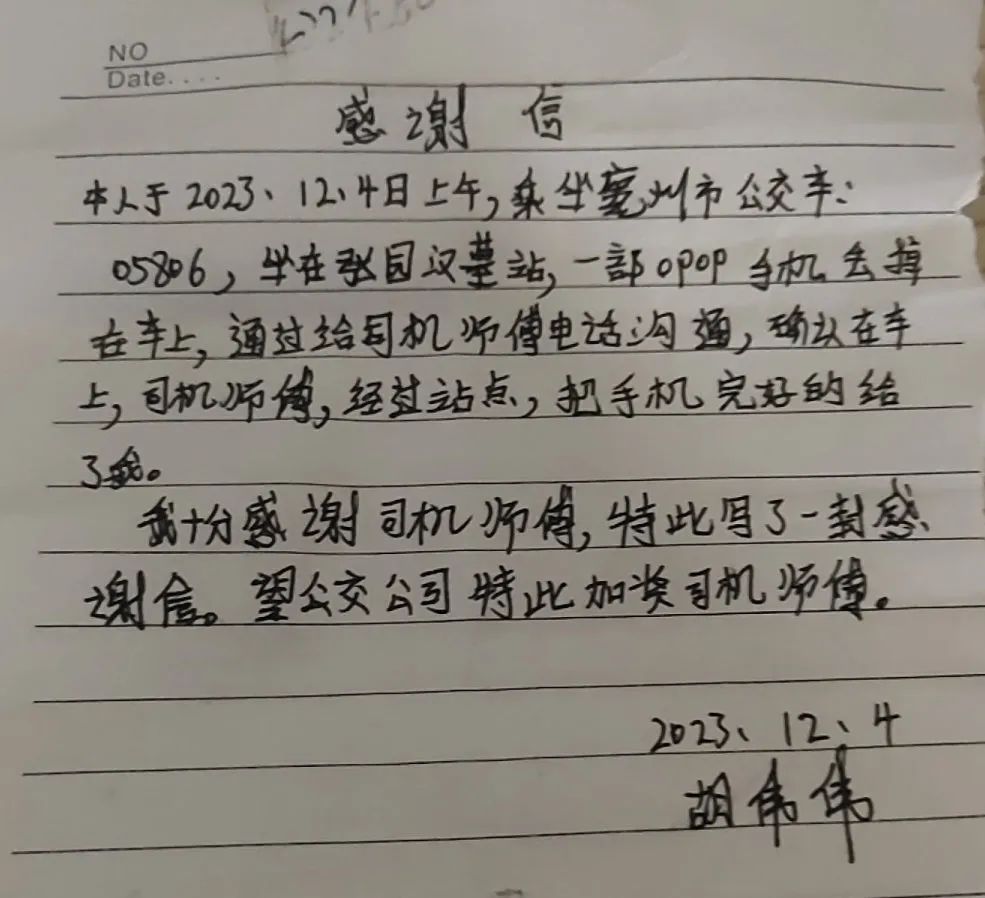 NO
Date....
感谢信
本人于2023、12.4日上午,乘坐亳州市公交车:
05806,坐在张园汉墓站,一部opop手机丢掉
在车上,通过给司机师傅电话沟通,确认在车
上,司机师傅,经过站点,把手机完好的给
了我。
我十分感谢司机师傅,特此写了一封感
谢信。望公交公司特此加奖司机师傅。
2023、12、4
胡伟伟